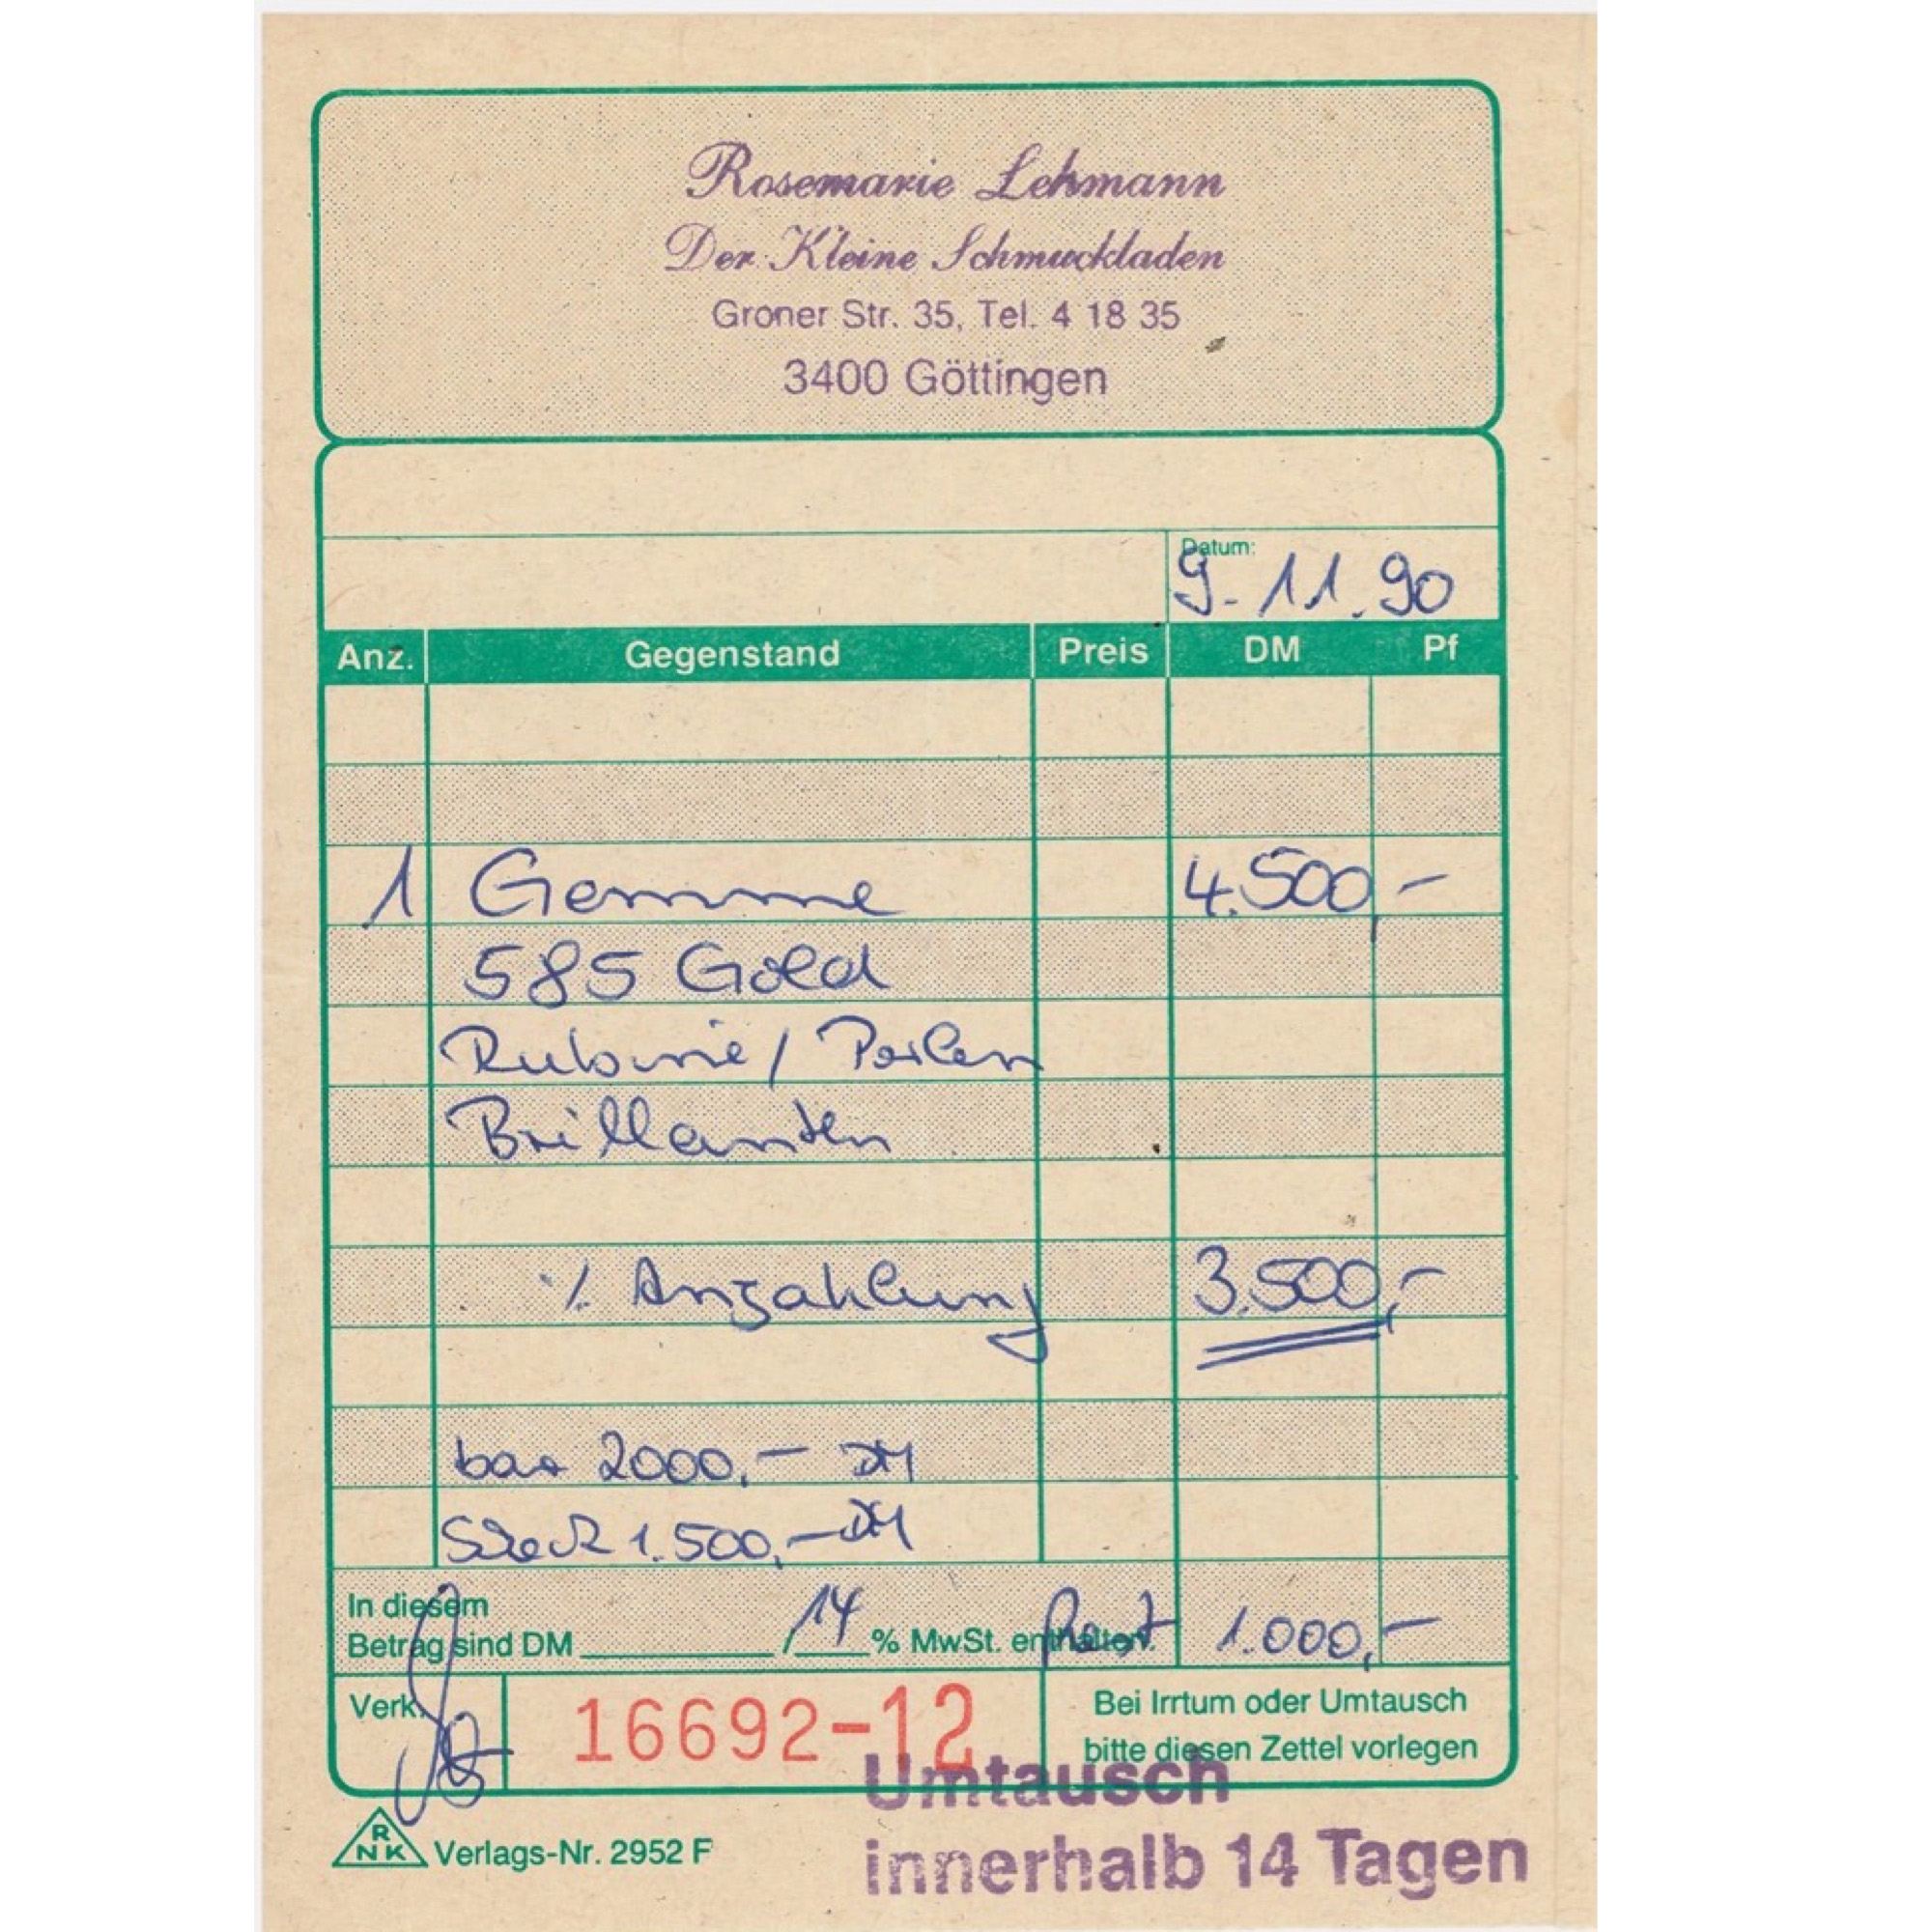 Rosemarie Lehmann
Der Kleine Schmuckladen
Groner Str. 35, Tel. 4 18 35
3400 Göttingen
Datum:
9.11.90
Anz. Gegenstand Preis DM Pf
1 Gemme 4.500,-
585 Gold
Rubine / Perlen
Brillanten
./. Anzahlung 3.500,-
bar 2000,- DM
Scheck 1.500,- DM
In diesem
Betrag sind DM / 14 % MwSt. enthalten. Rest 1.000,-
Verk. 16692-12 Bei Irrtum oder Umtausch
bitte diesen Zettel vorlegen
Umtausch
innerhalb 14 Tagen
RNK Verlags-Nr. 2952 F